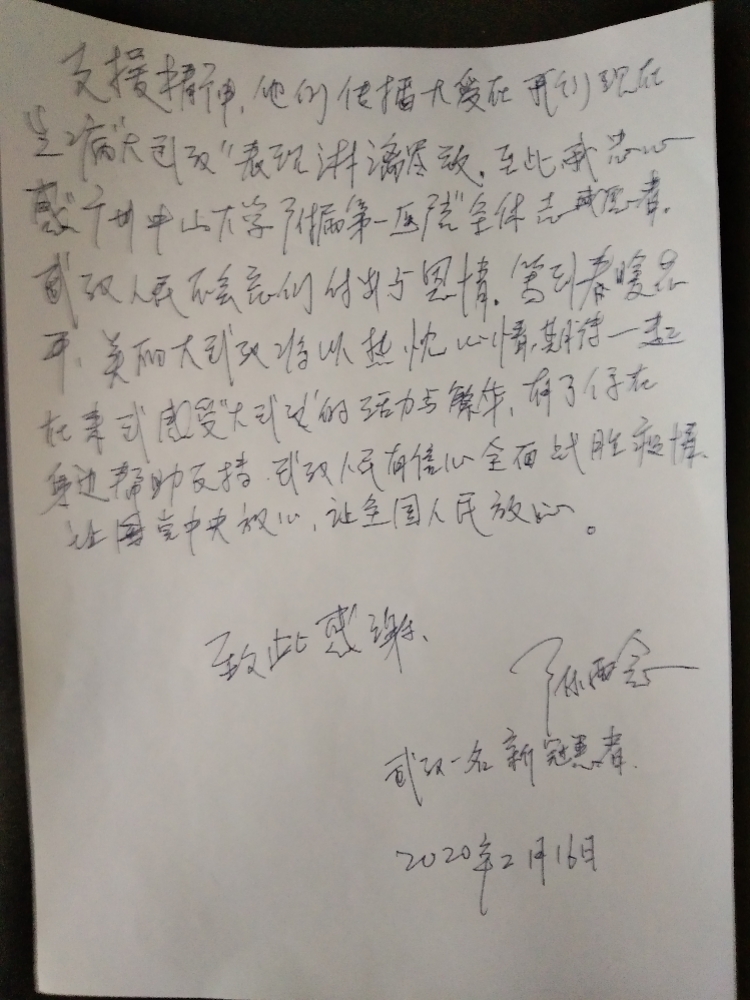 支援精神,他们传播大爱在我们现在
生病"大武汉"表现淋漓尽致。至此我忠心
感"广州中山大学附属第一医院"全体志愿者。
武汉人民不会忘们付出与恩情。等到春暖花
开,美丽大武汉将以热忱心情,期待一起
在来武感受"大武汉"的活力与繁华,有了你在
身边帮助支持.武汉人民有信心全面战胜疫情
让国党中央放心,让全国人民放心。
致此感谢、
武汉一名新冠患者.
2020年2月16日